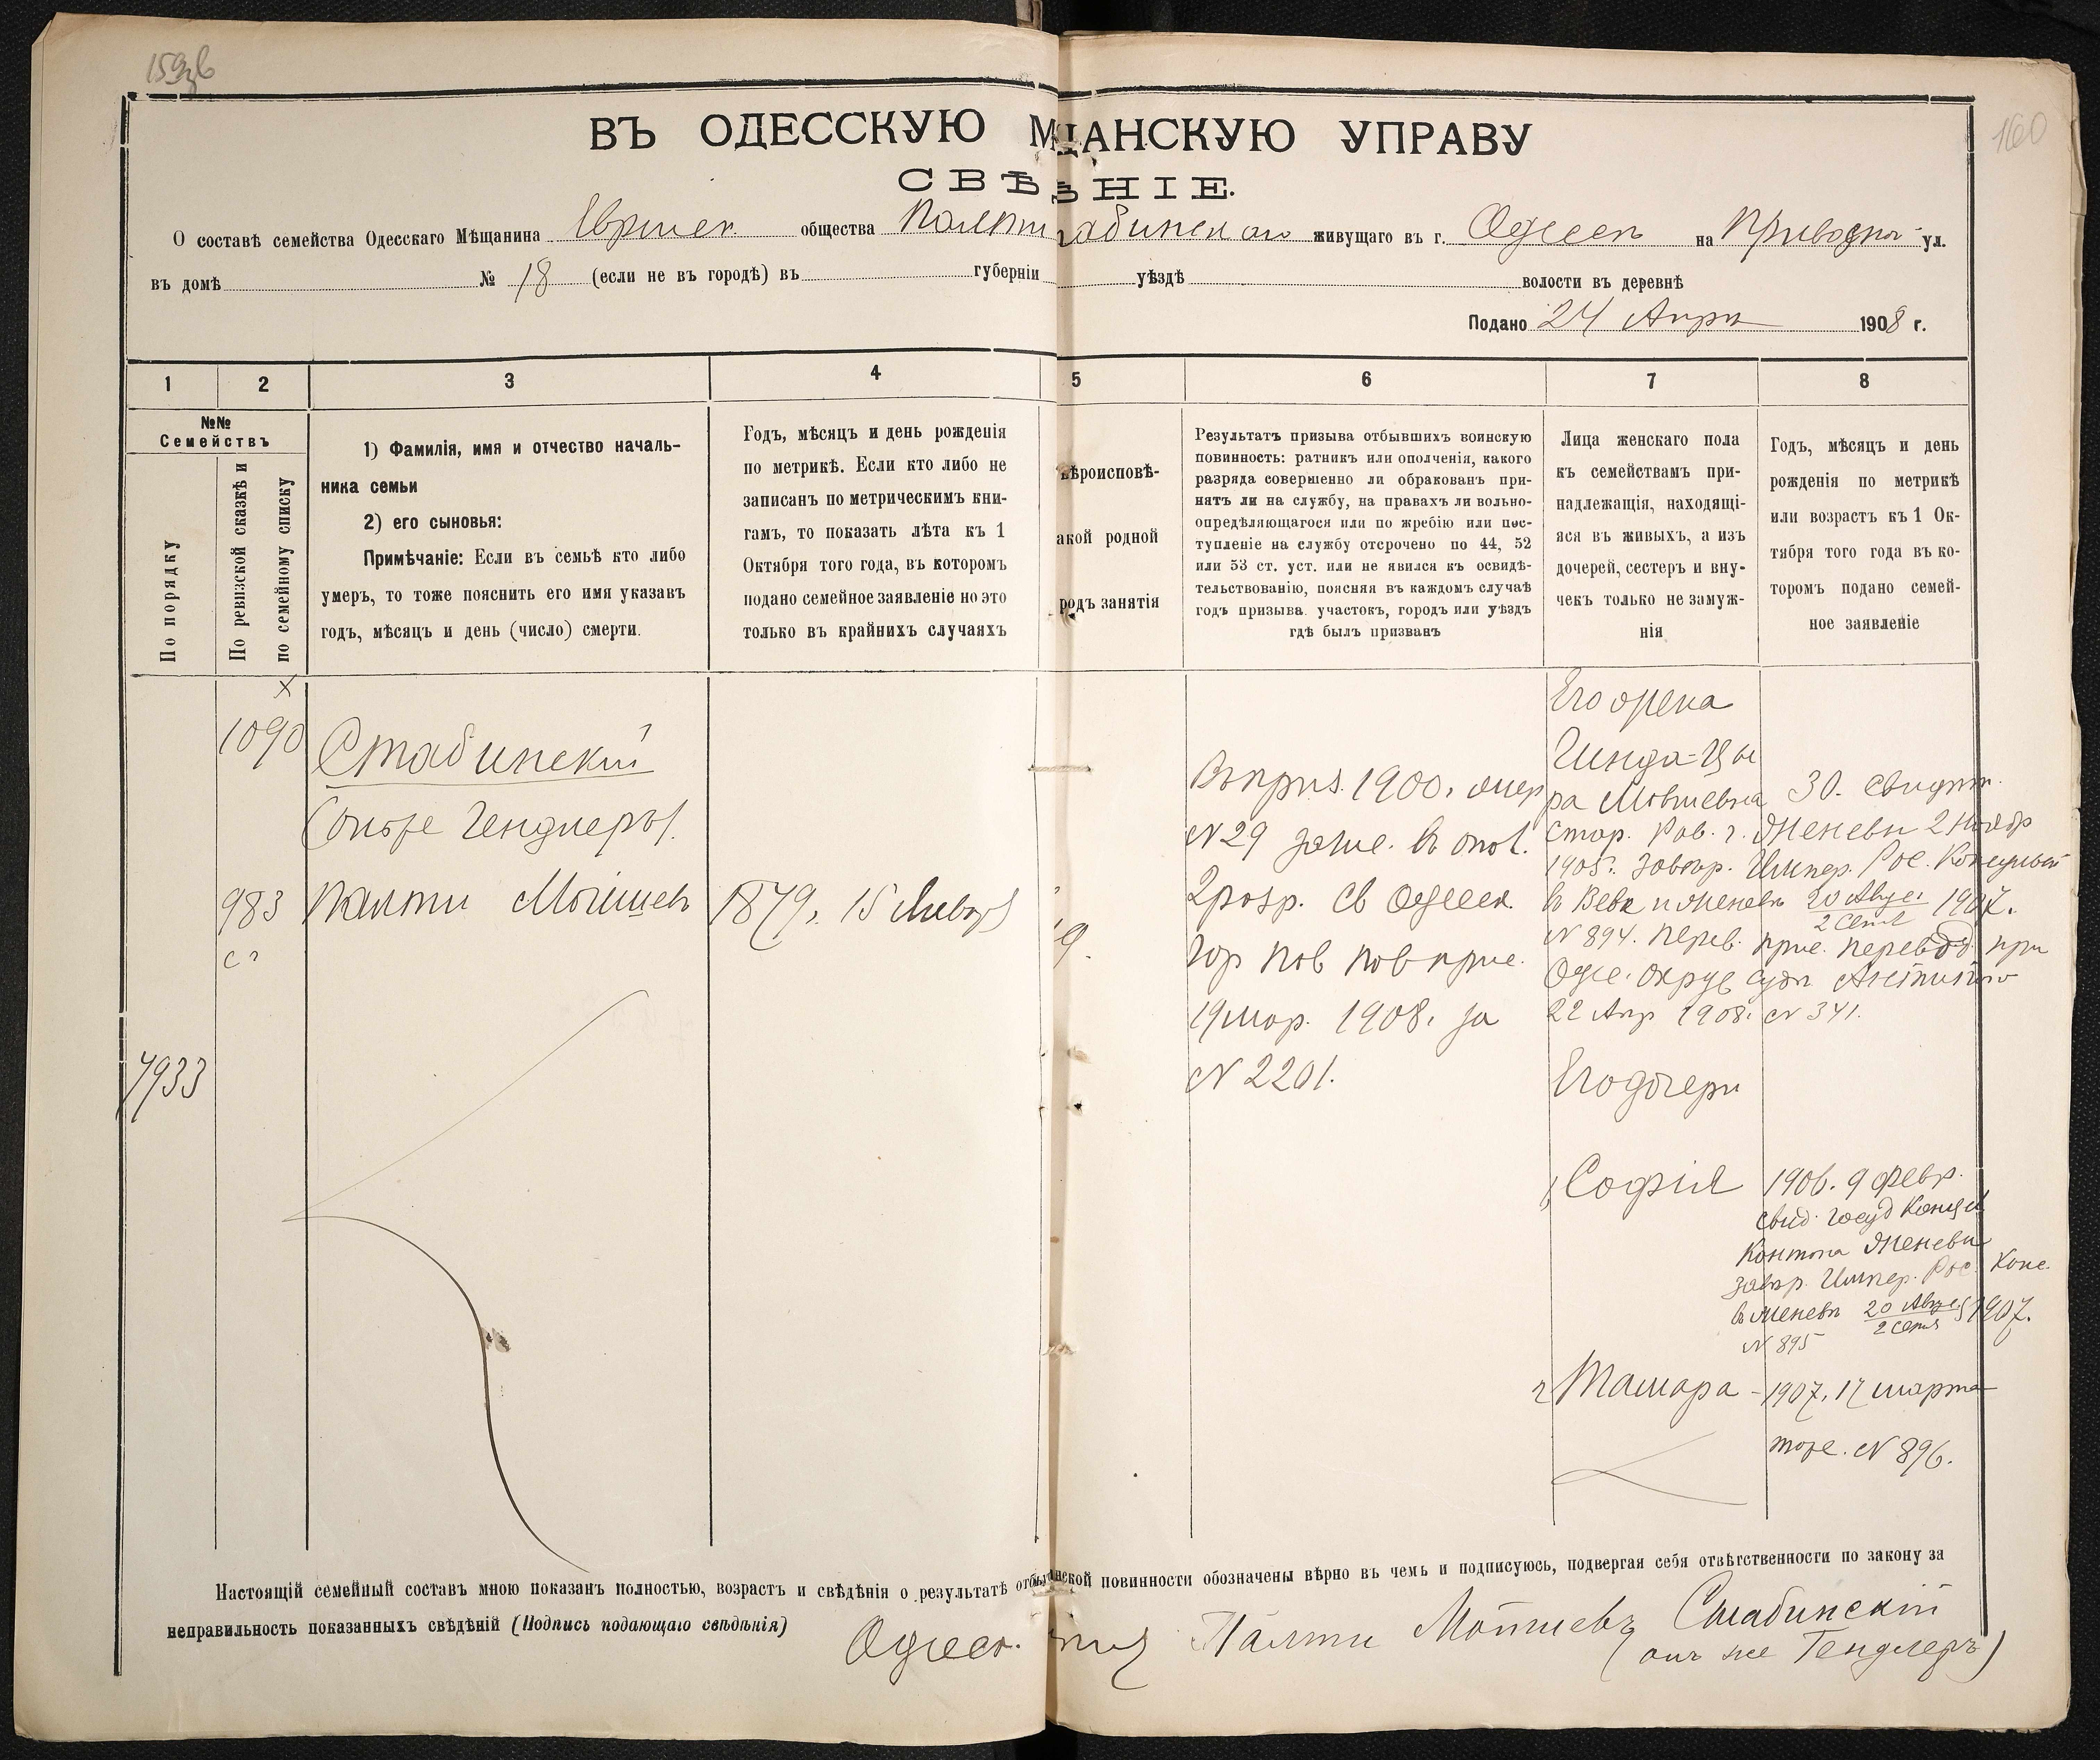 159 об
160
ВЪ ОДЕССКУЮ М ЩАНСКУЮ УПРАВУ
СВѢ НІЕ.
О составѣ семейства Одесскаго Мѣщанина Еврейск. общества Палти абинскаго живущаго въ г. Одессѣ на Привозной ул.
въ домѣ № 18 (если не въ городѣ) въ губерніи уѣздѣ волости въ деревнѣ
Подано 24 Апрѣ 1908 г.
1 2 3 4 5 6 7 8
№№
Семействъ
По порядку
По ревизской сказкѣ и
по семейному списку
1) Фамилія, имя и отчество началь-
ника семьи
2) его сыновья:
Примѣчаніе: Если въ семьѣ кто либо
умеръ, то тоже пояснить его имя указавъ
годъ, мѣсяцъ и день (число) смерти.
Годъ, мѣсяцъ и день рожденія
по метрикѣ. Если кто либо не
записанъ по метрическимъ кни-
гамъ, то показать лѣта къ 1
Октября того года, въ которомъ
подано семейное заявленіе но это
только въ крайнихъ случаяхъ
ѣроисповѣ-
акой родной
родъ занятія
Результатъ призыва отбывшихъ воинскую
повинность: ратникъ или ополченія, какого
разряда совершенно ли обракованъ при-
нятъ ли на службу, на правахъ ли вольно-
опредѣляющагося или по жребію или пос-
тупленіе на службу отсрочено по 44, 52
или 53 ст. уст. или не явился къ освидѣ-
тельствованію, поясняя въ каждомъ случаѣ
годъ призыва участокъ, городъ или уѣздъ
гдѣ былъ призванъ
Лица женскаго пола
къ семействамъ при-
надлежащія, находящі-
яся въ живыхъ, а изъ
дочерей, сестеръ и вну-
чекъ только не замуж-
нія
Годъ, мѣсяцъ и день
рожденія по метрикѣ
или возрастъ къ 1 Ок-
тября того года въ ко-
торомъ подано семей-
ное заявленіе
х
1090
Стабинскій
(онъ же Гендлеръ).
983
Палти Мойшевъ
1879, 15 Января
7933
Въ приз. 1900, жер
№ 29 зачис. въ опол.
2 разр. Св Одесск.
Гор Пов Пов прис.
19 мар. 1908. за
№ 2201.
Его жена
Гинда-Цы
ра Мовшевна 30. свидѣт.
стар. Рав. г. Женевы 2 Ноябр
1905. Завѣр. Импер. Рос. Консульст
въ Веве и Женевѣ 20 Авгус. / 2 Сент 1907.
№ 894. перев. прис. перевод при
Одес. Окруж Судѣ
22 Апр 1908. № 341.
Его дочери
1, Софія 1906. 9 Февр.
Свид. Госуд Канцел
Контона Женевы
завѣр. Импер. Рос. Конс.
въ Женевѣ 20 Авгус. / 2 Сент 1907.
№ 895
2 Тамара - 1907, 17 марта
тоже. № 896.
Настоящій семейный составъ мною показанъ полностью, возрастъ и свѣдѣнія о результатѣ отбы нской повинности обозначены вѣрно въ чемъ и подписуюсь, подвергая себя отвѣтственности по закону за
неправильность показанныхъ свѣдѣній (Подпись подающаго свѣдѣнія)
Одесс. Палти Мойшевъ Стабинскій
(онъ же Гендлеръ)